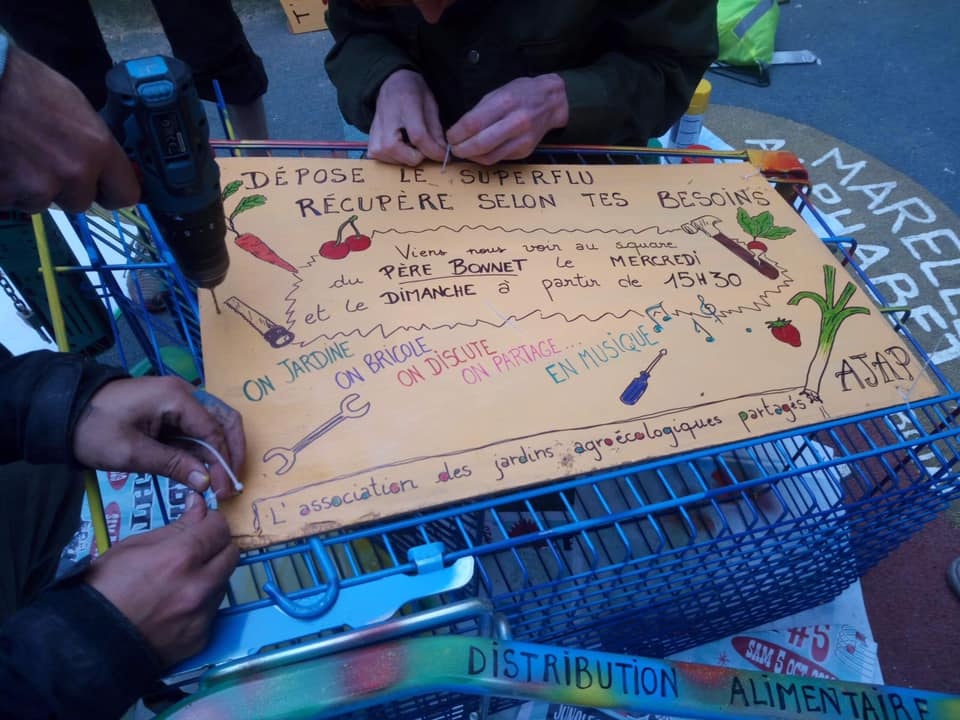 DÉPOSE LE SUPERFLU
RÉCUPÈRE SELON TES BESOINS
Viens nous voir au square
du PÈRE BONNET le MERCREDI
et le DIMANCHE à partir de 15H30
ON JARDINE
ON BRICOLE
ON DISCUTE
ON PARTAGE...
EN MUSIQUE
AJAP
L'association des jardins agroécologiques partagés
MARELLE
ALPHABET
#5
SAM 5 OCT
DISTRIBUTION ALIMENTAIRE